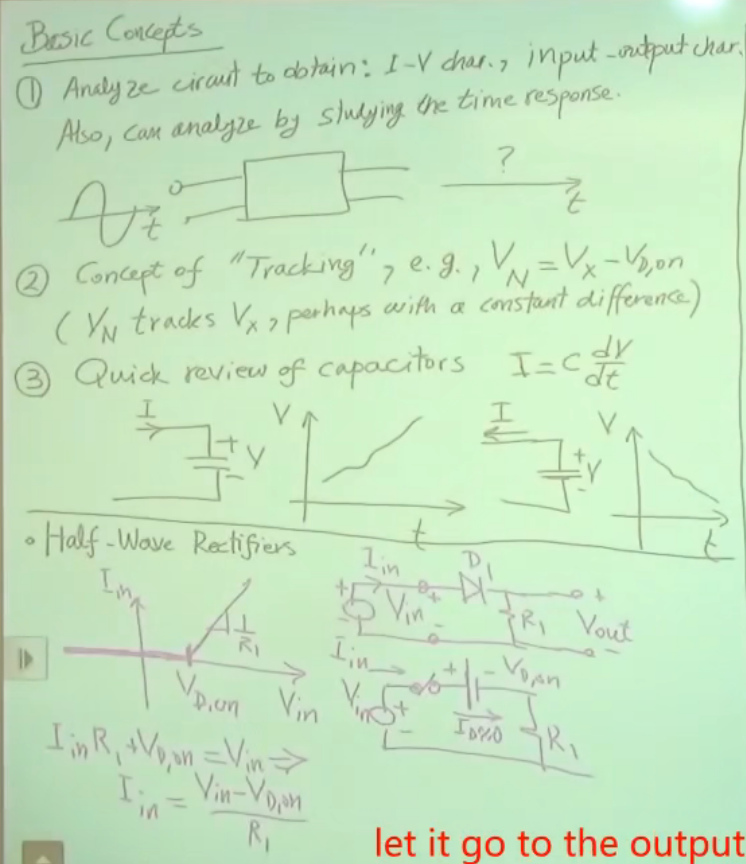 Basic Concepts
① Analyze circuit to obtain: I-V char., input-output char.
Also, can analyze by studying the time response.
?
t
t
② Concept of "Tracking", e.g., V_N = V_X - V_D,on
(V_N tracks V_X, perhaps with a constant difference)
③ Quick review of capacitors I = C dV/dt
I
+
V
-
V
t
I
+
V
-
V
t
• Half-Wave Rectifiers
I_in
1/R_1
V_D,on
V_in
I_in
D_1
+
-
+
V_in
-
R_1
+
V_out
-
I_in
V_in
+
-
+
- V_D,on
R_1
I_in R_1 + V_D,on = V_in ⇒
I_in = (V_in - V_D,on)/R_1
let it go to the output